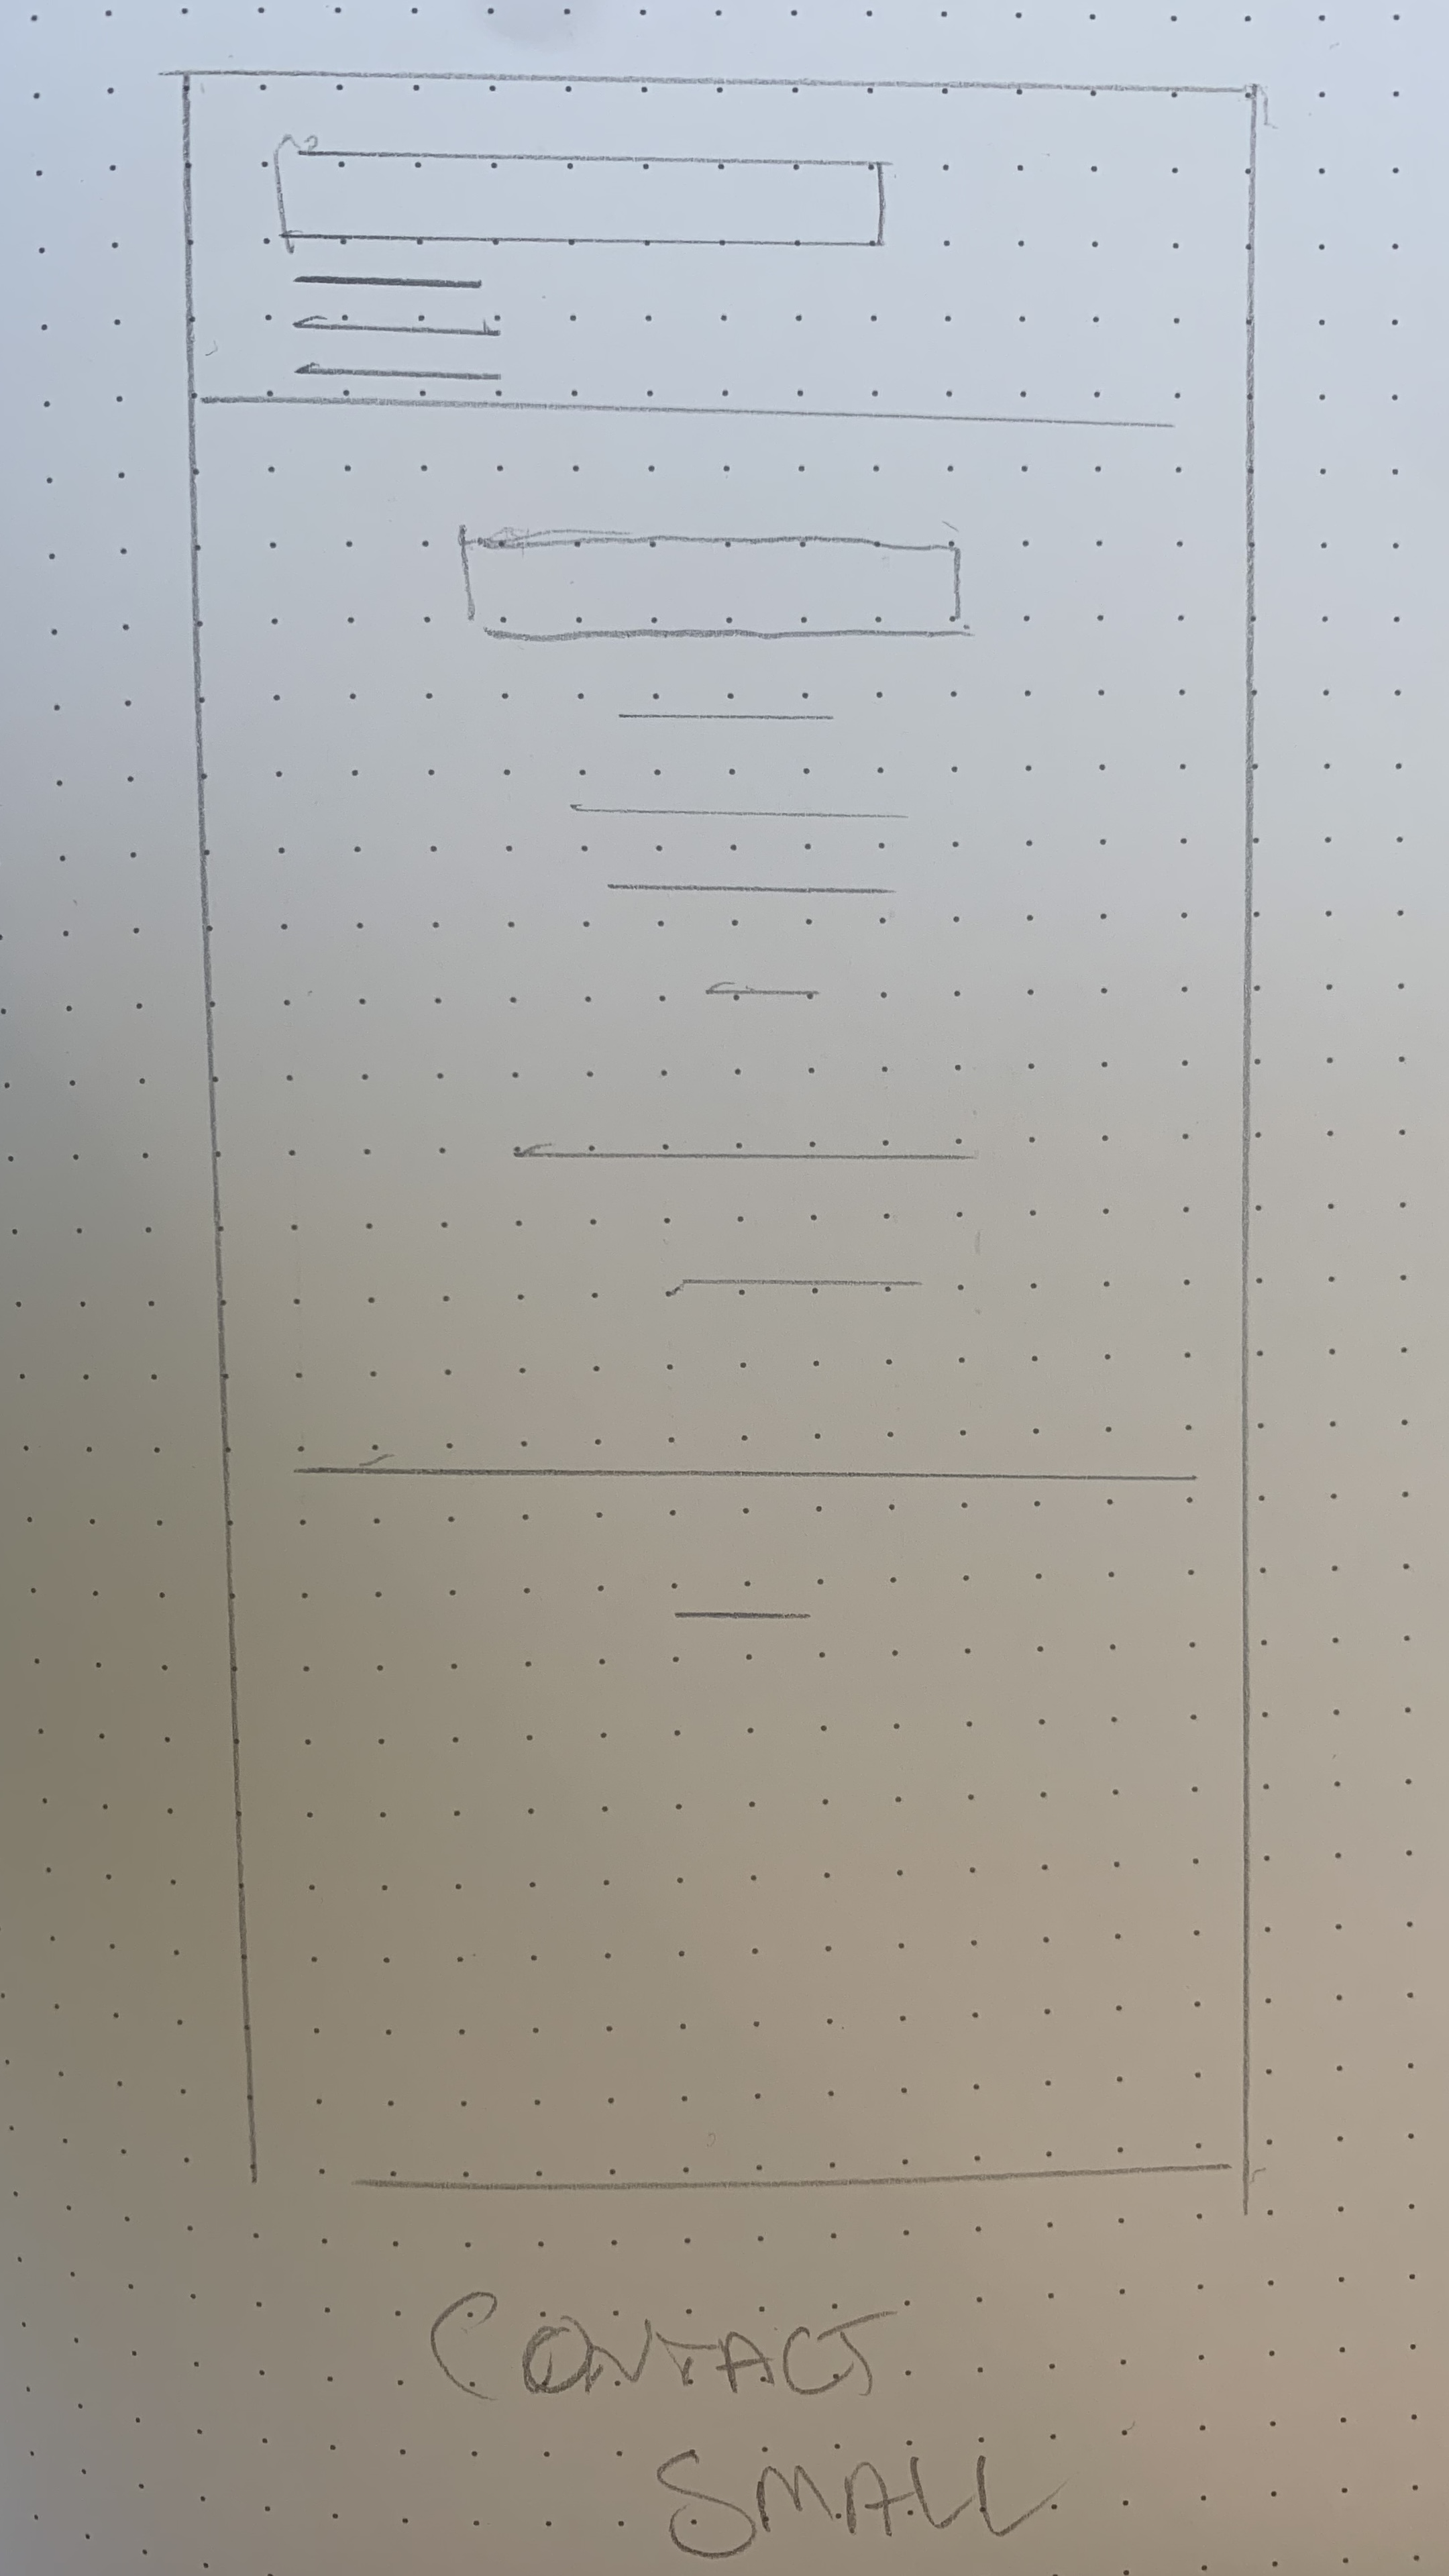 CONTACT
SMALL